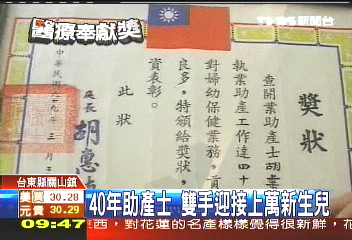 醫療奉獻獎
TVBS新聞台
獎狀
查開業助產士胡
執業助產工作達四十
對婦幼保健業務,貢
良多,特頒給獎狀,
資表彰。
此狀
處長 胡惠
中華民國
九年 三月 三
台東縣關山鎮
美買 30.28
元賣 30.29
09:47
40年助產士 雙手迎接上萬新生兒
西,對花蓮的名產樣樣覺得很新鮮